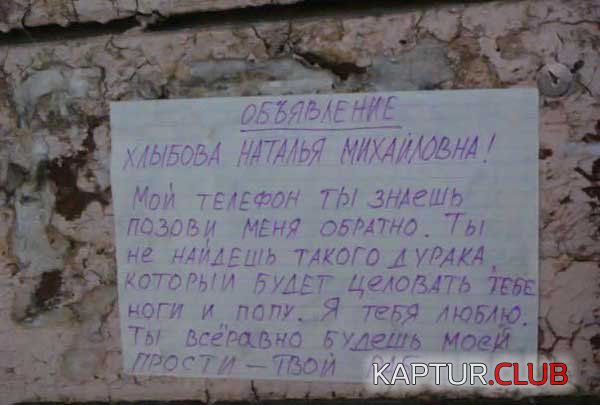 ОБЪЯВЛЕНИЕ
ХЛЫБОВА НАТАЛЬЯ МИХАЙЛОВНА!
МОЙ ТЕЛЕФОН ТЫ ЗНАЕШЬ
ПОЗОВИ МЕНЯ ОБРАТНО. ТЫ
НЕ НАЙДЕШЬ ТАКОГО ДУРАКА,
КОТОРЫЙ БУДЕТ ЦЕЛОВАТЬ ТЕБЕ
НОГИ И ПОПУ. Я ТЕБЯ ЛЮБЛЮ.
ТЫ ВСЁРАВНО БУДЕШЬ МОЕЙ
ПРОСТИ — ТВОЙ
KAPTUR.CLUB